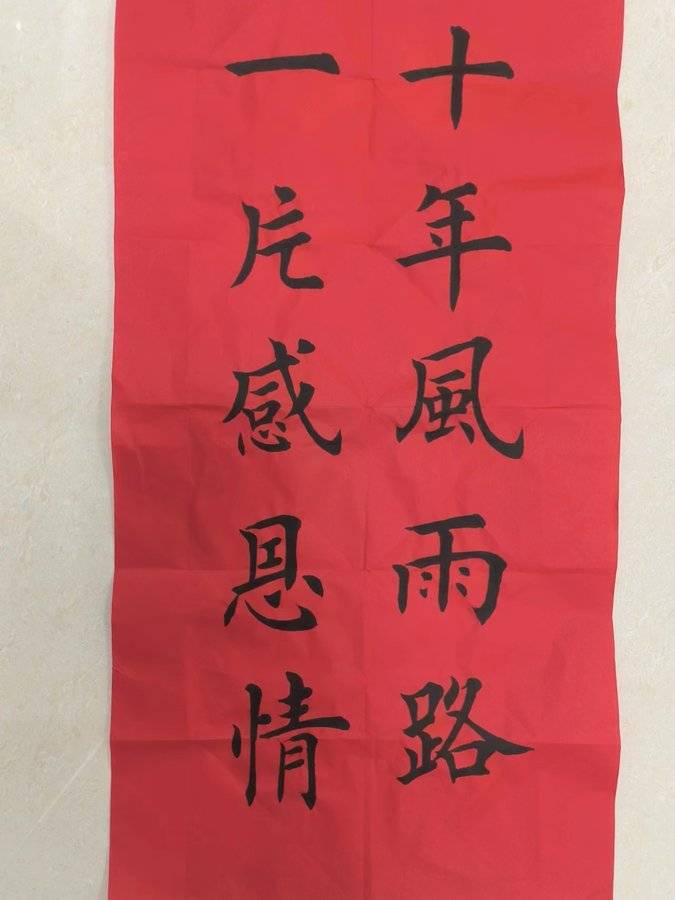 十年風雨路
一片感恩情